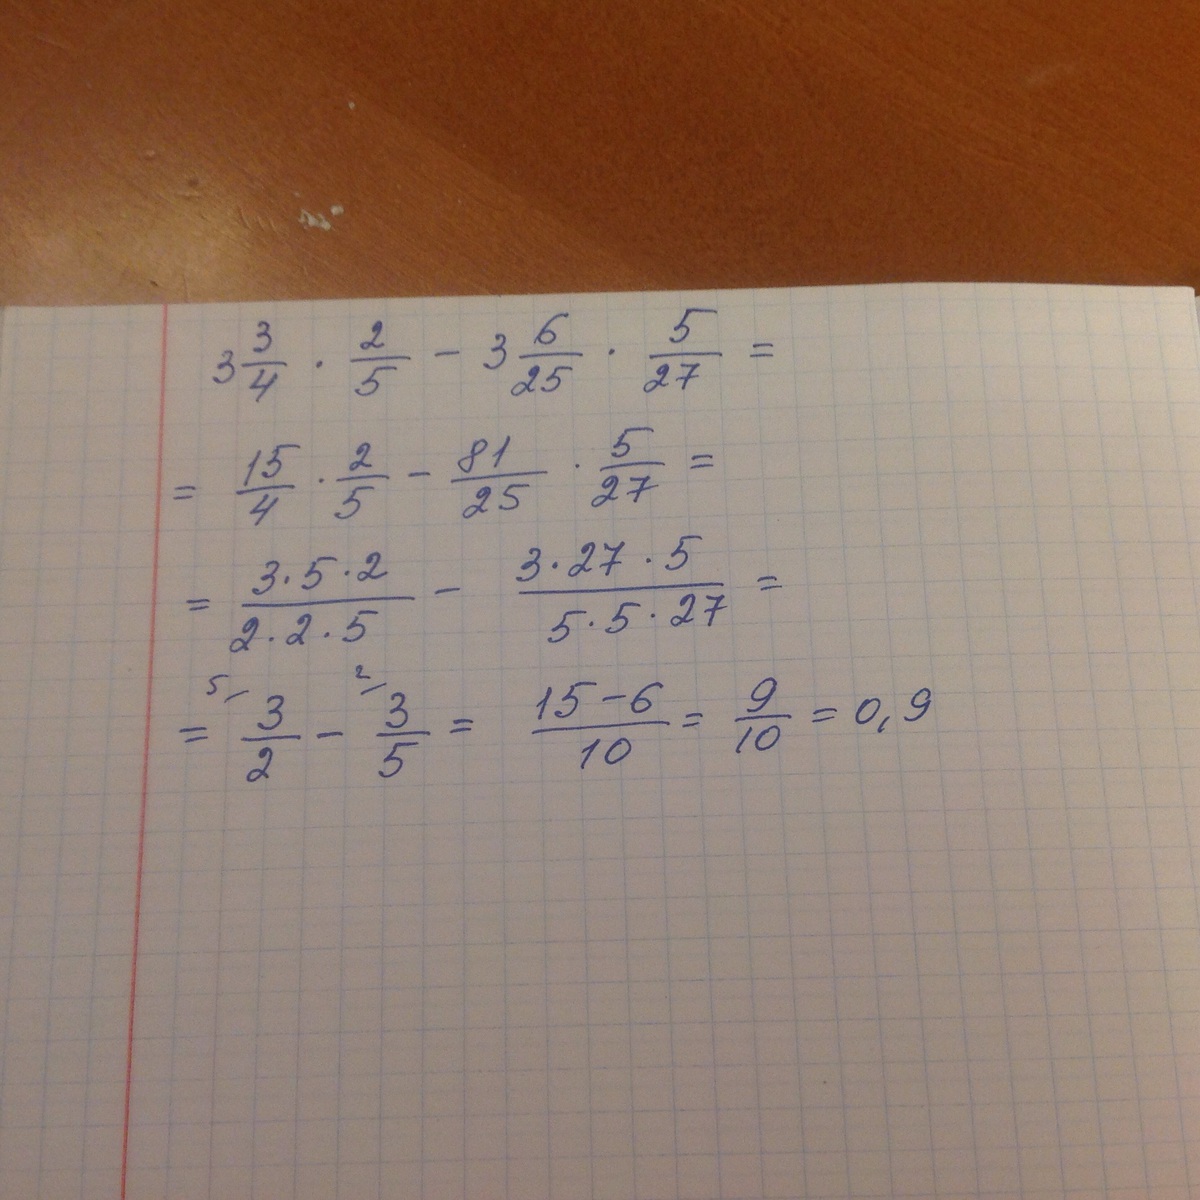 3 3/4 · 2/5 - 3 6/25 · 5/27 =
= 15/4 · 2/5 - 81/25 · 5/27 =
= 3·5·2/2·2·5 - 3·27·5/5·5·27 =
= 5 3/2 - 2 3/5 = 15-6/10 = 9/10 = 0,9